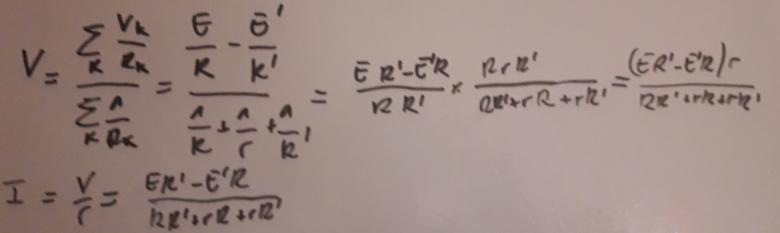 V = \frac{\sum_K \frac{V_K}{R_K}}{\sum_K \frac{1}{R_K}} = \frac{\frac{E}{R} - \frac{E'}{R'}}{\frac{1}{R} + \frac{1}{r} + \frac{1}{R'}} = \frac{ER' - E'R}{RR'} \times \frac{RrR'}{RR' + rR + rR'} = \frac{(ER' - E'R)r}{RR' + rR + rR'}
I = \frac{V}{r} = \frac{ER' - E'R}{RR' + rR + rR'}